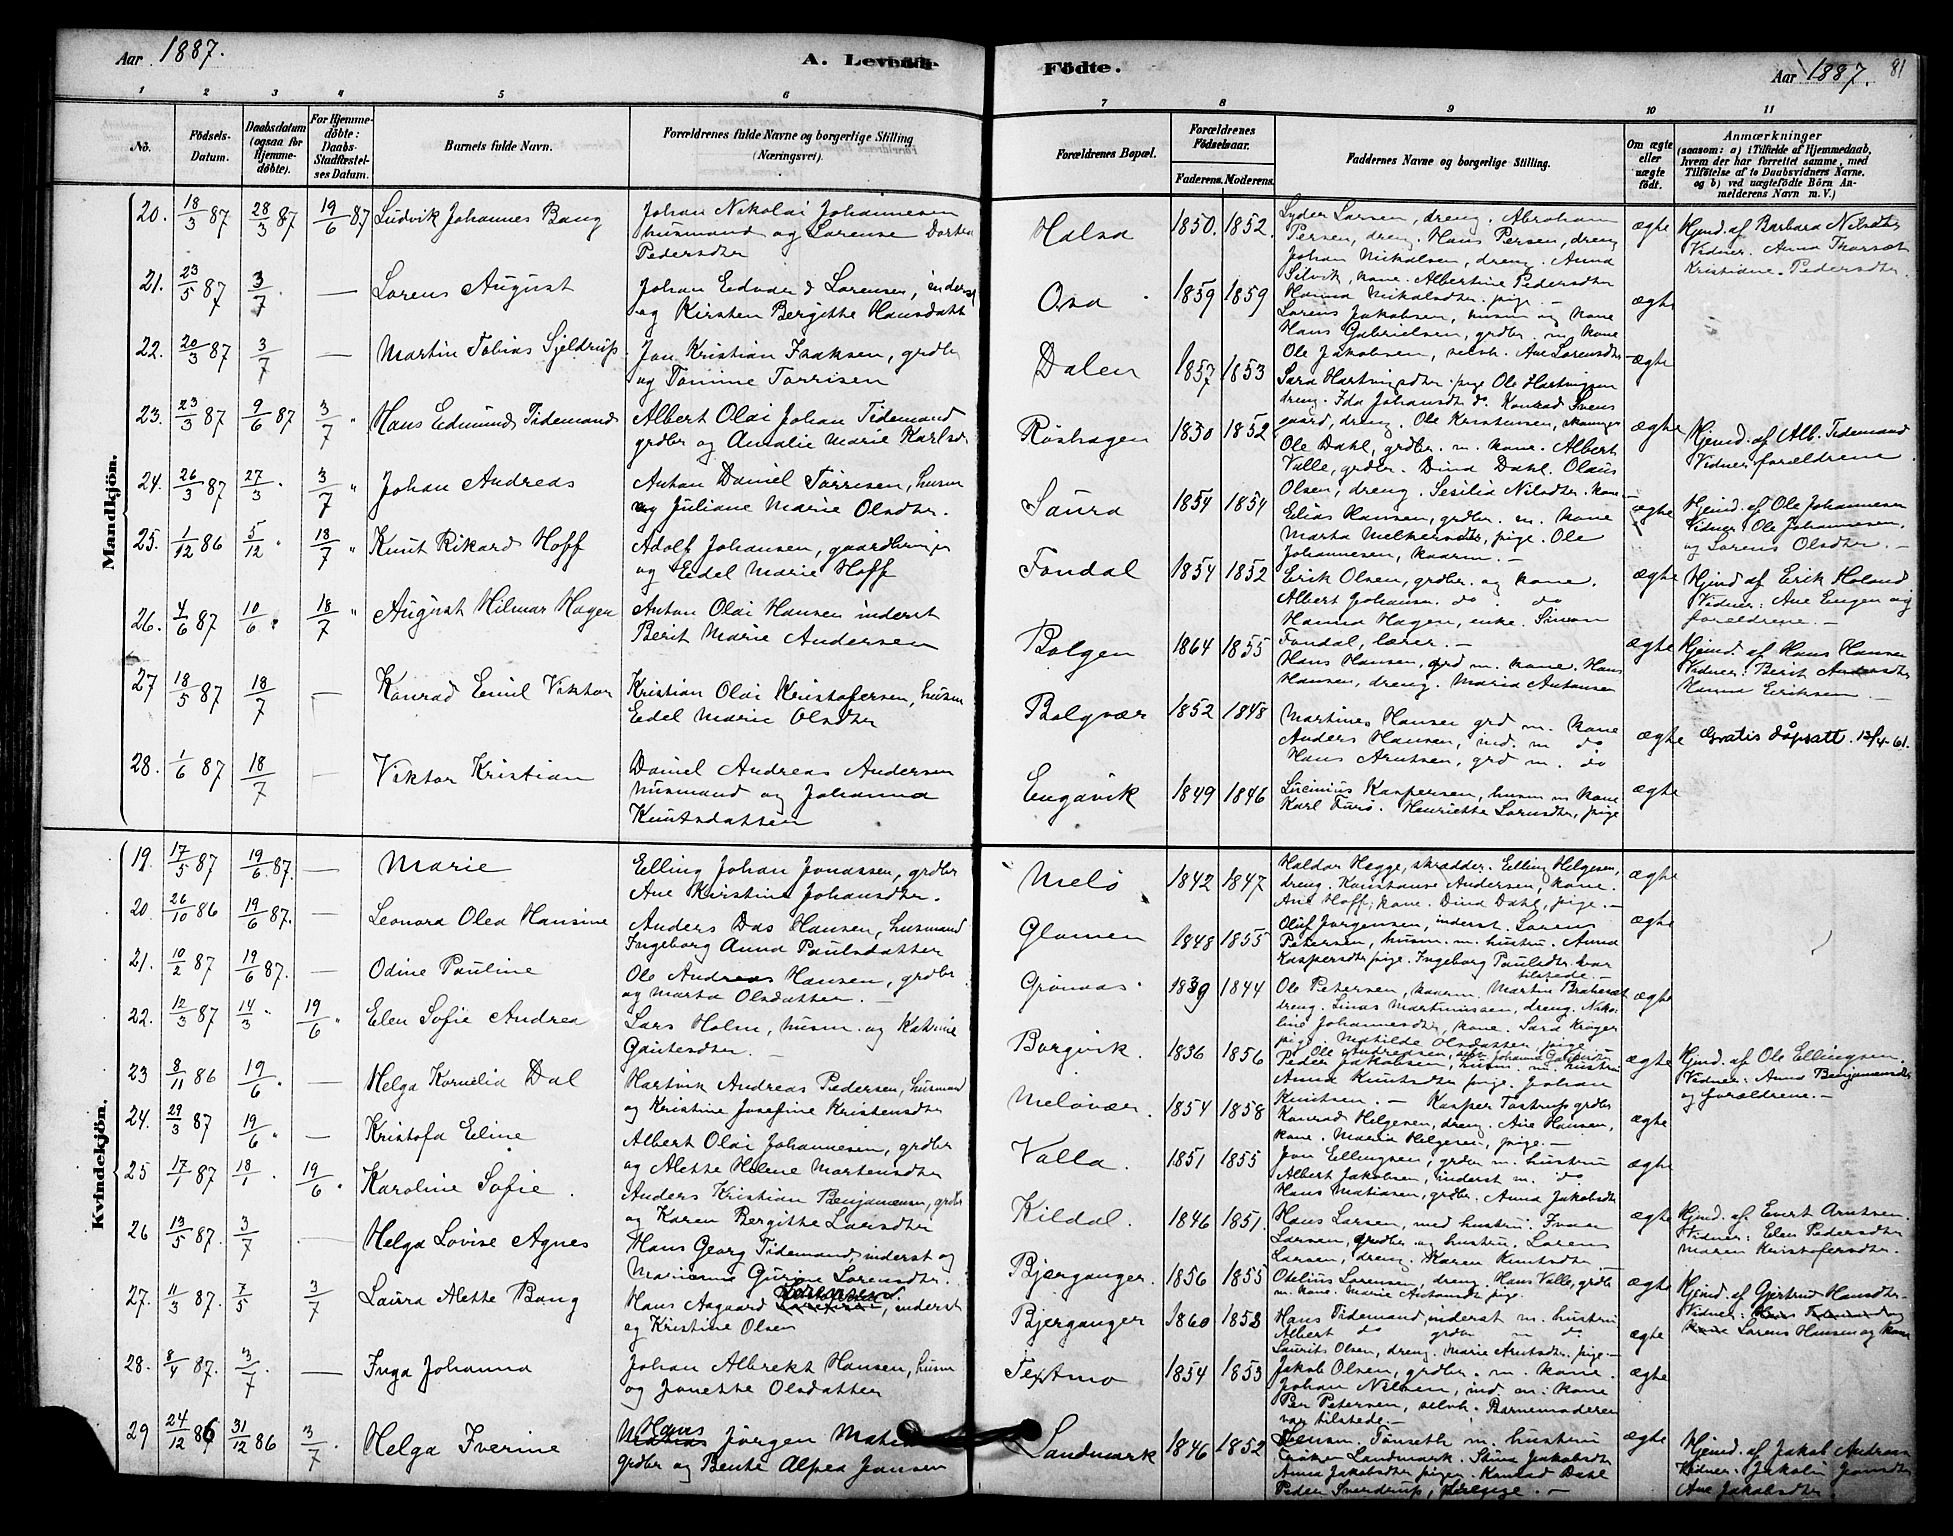 Aar 1887.
A. Levende
Födte.
Aar 1887.
81
1 2 3 4 5 6 7 8 9 10 11
No.
Födsels-
Datum.
Daabsdatum
(ogsaa for
Hjemme-
döbte).
For Hjemme-
döbte:
Daabs-
Stadfæstel-
ses Datum.
Barnets fulde Navn.
Forældrenes fulde Navne og borgerlige Stilling
(Næringsvei).
Forældrenes Bopæl.
Forældrenes
Födselsaar.
Faderens. Moderens.
Faddernes Navne og borgerlige Stilling.
Om ægte
eller
uægte
födt.
Anmærkninger
(saasom: a) i Tilfælde af Hjemmedaab,
hvem der har forrettet samme, med
Tilföielse af to Daabsvidners Navne,
og b) ved uægtefödte Börn An-
melderens Navn m. V.)
Mandkjön.
20. 18/3 87 28/3 87 19/6 87 Ludvik Johannes Bang
Johan Nikolai Johannesen
husmand og Lorense Dortea
Pedersdtr
Halsa 1850. 1852.
Lyder Larsen, dreng. Abraham
Persen, dreng. Hans Persen, dreng
Johan Nickolsen, dreng. Anna
Selvik, kone. Albertine Pedersdtr
Hanna Nikolaisdtr. pige. –
ægte
Hjmd. af Barbara Nilsdtr
Vidner: Anna
Kristiane Pedersdtr.
21. 23/5 87 3/7 . — Lorens August
Johan Edvard Lorensen, inderst
og Kirsten Bergitte Hansdatt
Osa 1859 1859
Lorens Jakobsen, husm og kone
Hans Gabrielsen, grdbr. m. kone
ægte
22. 20/3 87 3/7 — Martin Tobias Sjeldrup.
Jon Kristian Isaksen, grdbr
og Tomine Torrisen
Dalen 1857 1853
Ole Jakobsen, selvh. Ane Lorensdtr
Sara Hartvigsdtr. pige Ole Hartvigsen
dreng. Ida Johansdt do. Konrad Svens
gaard, dreng. Ole Kristensen,
ægte
23. 23/3 87 9/6 87 3/7 " Hans Edmund Tidemand
Albert Olai Johan Tidemand
grdbr og Amalie Marie Karlsd
Røshagen 1850 1852
Ole Dahl, grdbr. m. kone. Albert
Valle, grdbr. Dina Dahl. Olaus
Olsen, dreng. Sesilia Nilsdtr. kone
ægte
Hjmd. af Alb. Tidemand
Vidner forældrene.
24. 26/3 87 27/3 . 3/7 " Johan Andreas
Anton Daniel Torrisen, husm
og Juliane Marie Olsdtr.
Saura 1854 1854
Elias Hansen, grdbr. m. kone
Marta Melkersdtr, pige. Ole
Johannesen, kaarm. –
ægte
Hjmd. af Ole Johannesen
Vidner Ole Johannesen,
og Lorens Olsdtr. –
25. 1/12 86 5/12 " 18/7 " Knut Rikard Hoff
Adolf Johansen, gaardbruger
og Edel Marie Hoff
Fondal 1854 1852
Erik Olsen, grdbr. og kone.
Albert Johansen. do . do
Hanna Hagen, enke. Simon
Fondal, lærer. –
ægte
Hjmd af Erik Holand
Vidner: Ane Engen og
forældrene. –
26. 4/6 87 10/6 " 18/7 " August Hilmar Hagen
Anton Olai Hansen inderst
Berit Marie Andersen
Bolgen 1864 1855
Hans Hansen, grd m. kone. Hans
Hansen, dreng. Maria Antonsen
ægte
Hjmd. af Hans Hansen
Vidner: Berit Andersdtr
Hanna Eriksen. –
27 18/5 87 18/7 — Konrad Emil Viktor
Kristian Olai Kristofersen, husm
Edel Marie Olsdtr
Bolgvær 1852 1848
Martines Hansen grd m. kone
Anders Hansen, ind. m do
Hans Arntsen, grd m. do
ægte
Gratis dåpsatt. 13/4-61.
28. 1/6 87 18/7 — Viktor Kristian
Daniel Andreas Andersen
husmand og Johanna
Knutsdatter
Engavik 1849 1846
Lucinius Kaspersen, husm m kone
Karl Furø. Henriette Lornsdtr, pige
ægte
Kvindekjön.
19. 17/5 87 19/6 87. — Marie
Elling Johan Jonassen, grdbr
Ane Kirstine Johansdtr.
Melö 1842 1847
Haldor Hegge, skrædder. Elling Helgesen,
dreng. Konstanse Andersen, kone.
Ane Hoff, kone. Dina Dahl, pige. –
ægte
20. 26/10 86 19/6 87. — Leonora Olea Hansine
Anders Das Hansen, husmand
Ingeborg Anna Paulsdatter
Glomen 1848 1855
Oluf Jorgensen, inderst. Lorens
Petersen, husm. m. hustru. Anna
Kaspersdtr pige. Ingeborg Paulsdtr. var
tilstede. –
ægte
21. 10/2 87 19/6 87. — Odine Pauline
Ole Andreas Hansen, grdbr
og Marta Olsdatter. –
Grönaas. 1839 1844
Ole Petersen, kaarm. Martin
dreng. Linas Martinussen, dreng. Niko
line Johannesdtr, kone. Sara Krøger
pige. Matilde Olsdatter, pige
ægte
22. 12/3 87 14/3 " 19/6 " Elen Sofie Andrea
Lars Holm, husm. og Katrine
Gautesdtr. –
Borgvik. 1836 1856
Peder Jakobsen, husm. m. hustru
Anna Knutsdtr pige. Johan
Knutsen. –
ægte
Hjmd. af Ole Ellingsen.
Vidner: Anna Benjamensdtr
og forældrene. –
23 8/11 86 19/6 . — Helga Kornelia Dal
Hartvik Andreas Pedersen, husmand
og Kristine Josefine Kristensdtr
Melövær. 1854 1858
Kasper Tostrup grdbr
Konrad Helgesen, dreng. Ane Hansen,
kone. Maria Helgesen, pige. –
ægte
24. 29/3 87 19/6 " — Kristofa Eline
Albert Olai Johannesen, grdbr
og Alette Helene Mortensdtr
Valla. 1851 1855
Jon Ellingsen, grdbr m. hustru
Albert Jakobsen, inderst m. do
Hans Matiasen, grdbr. Anna Jakobsdtr
ægte
25 17/1 87 18/1 . 19/6 . Karoline Sofie.
Anders Kristian Benjamensen, grdbr
og Karen Bergitte Larsdtr
Kildal. 1846 1851.
Hans Larsen, med hustru. Ivar
Larsen, grdbr og hustru. Lorens
Larsen, dreng. Karen Knutsdtr. –
ægte
Hjmd. af. Evert Arntsen.
Vidner: Elen Pedersdtr
Maren Kristofersdtr.
26 13/5 87. 3/7 — Helga Lovise Agnes
Hans Georg Tidemand, inderst og
Marianna Gurine Lorensdtr.
Bjærganger. 1856 1855
Odelius Lorensen, dreng. Hans Valle, grdbr
m. kone. Marie Antonsdt pige.
ægte
27. 11/3 87. 7/5 3/7 Laura Alette Bang
Hans Aagaard, inderst
og Kristine Olsen
Bjerganger 1860 1858
Hans Tidemand, inderst m. hustru
Albert do grdbr m do
Laurits Olsen, dreng. Marie Arntsdtr. pige –
ægte
Hjmd. af Gjertrud Hansdtr.
Vidner:
Lorens Hansen og kone
28. 8/4 87. 3/7 . — Inga Johanna
Johan Albrekt Hansen, husm
og Jonette Olsdatter
Textmo 1854 1853
Jakob Olsen, grdbr. m. kone.
Johan Nilsen, ind m. kone
Per Petersen, selvh. Barnemoderen
var tilstede. –
ægte
29 24/12 86 31/12 86 3/7 . Helga Iverine
Hans Jörgen
grdbr og Bente Alfea Jensen
Sandmark 1846 1852
Tönseth m. hustru
Landmark. Stina Jakobsdtr
Anna Jakobsdtr piger. Konrad Dahl
Peder Sverdrup,
ægte
Hjemd. af Jakob Andreas
Vidner:
Ane Jakobsdtr.